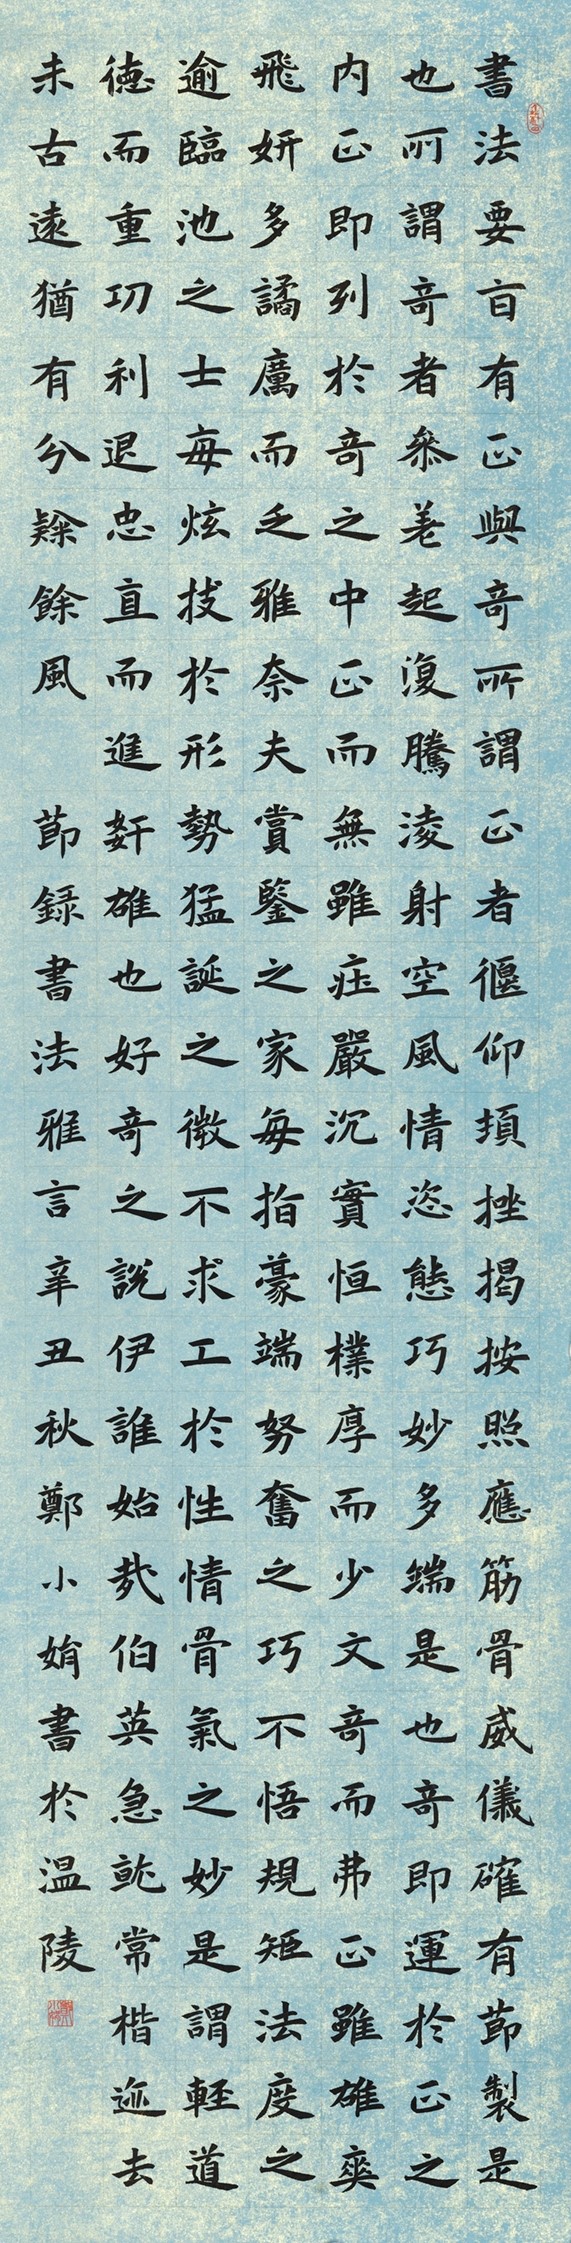 書法要旨有正與奇所謂正者偃仰頓挫揭按照應筋骨威儀確有節製是
也所謂奇者參差起復騰淩射空風情恣態巧妙多端是也奇即運於正之
内正即列於奇之中正而無雖莊嚴沉實恒樸厚而少文奇而弗正雖雄爽
飛妍多譎厲而乏雅奈夫賞鑒之家每指豪端努奮之巧不悟規矩法度之
逾臨池之士每炫技於形勢猛誕之微不求工於性情骨氣之妙是謂輕道
德而重功利退忠直而進奸雄也好奇之說伊誰始哉伯英急就常楷迹去
未古遠猶有分隸餘風 節録書法雅言辛丑秋鄭小娟書於温陵